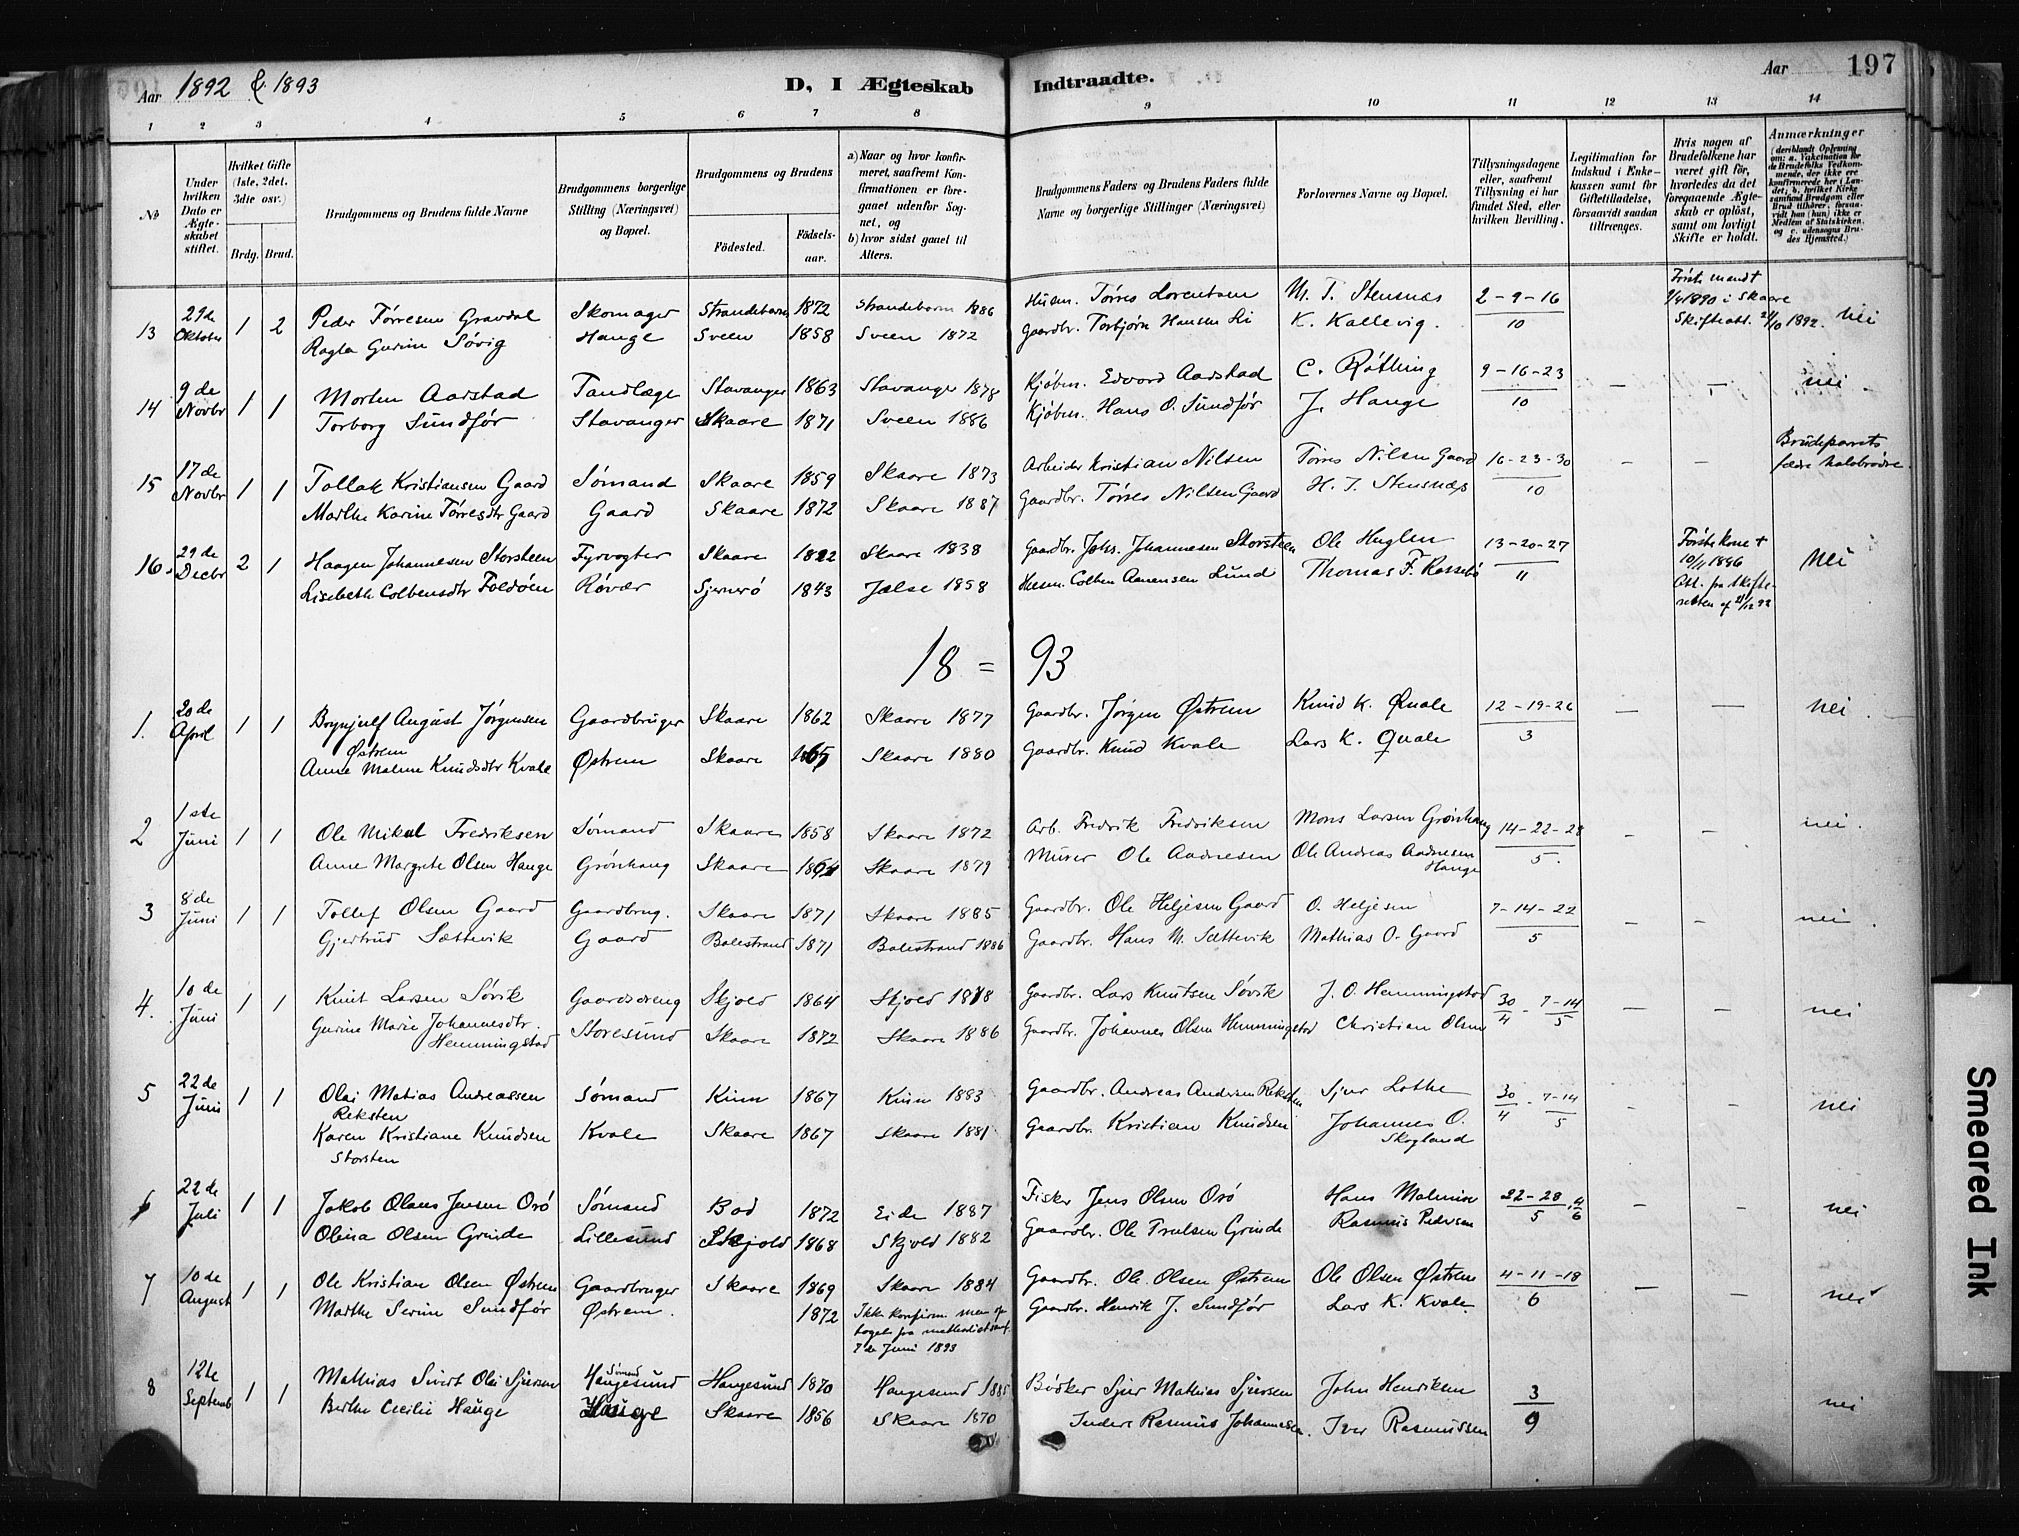 Aar 1892 & 1893
D, I Ægteskab Indtraadte.
Aar 197
1 2 3 4 5 6 7 8 9 10 11 12 13 14
No
Under hvilken Dato er Ægteskabet stiftet.
Hvilket Gifte (1ste, 2det, 3die osv.)
Brdg. Brud.
Brudgommens og Brudens fulde Navne
Brudgommens borgerlige Stilling (Næringsvei) og Bopæl.
Brudgommens og Brudens
Födested. Födselsaar.
a) Naar og hvor konfirmeret, saafremt Konfirmationen er foregaaet udenfor Sognet, og
b) hvor sidst gaaet til Alters.
Brudgommens Faders og Brudens Faders fulde Navne og borgerlige Stillinger (Næringsvei)
Forlovernes Navne og Bopæl.
Tillysningsdagene eller, saafremt Tillysning ei har fundet Sted, efter hvilken Bevilling.
Legitimation for Indskud i Enkekassen samt for Giftetilladelse, forsaavidt saadan tiltrænges.
Hvis nogen af Brudefolkene har været gift för, hvorledes da det foregaaende Ægteskab er oplöst, samt om lovligt Skifte er holdt.
Anmærkninger
13 29de Oktober 1 2 Peder Tørresen Gravdal Skomager Strandebarm 1872 Strandebarm 1886 Husm. Tørres Lorentsen M. T. Stensnæs 2-9-16 Første mand † 1890 i Skaare nei
Ragla Gurine Søvig Hauge Sveen 1858 Sveen 1872 Gaardbr. Torbjørn Hansen Li K. Kallevig. 10 Skifteatt. 1892.
14 9de Novbr 1 1 Morten Aarstad Tandlæge Stavanger 1863 Stavanger 1878 Kjøbm. Edvard Aarstad C. Røthing 9-16-23 — — nei
Torborg Sundfør Stavanger Skaare 1871 Sveen 1886 Kjøbm. Hans O. Sundfør J. Hauge 10
15 17de Novbr 1 1 Tollak Kristiansen Gaard Sømand Skaare 1859 Skaare 1873 Arbeider Kristian Nilsen Tørres Nilsen Gaard 16-23-30 — — Brudeparrets fædre halvbrødre.
Marthe Karine Tørresdtr Gaard Gaard Skaare 1872 Skaare 1887 Gaardbr. Tørres Nilsen Gaard H. T. Stensnæs 10
16. 29de Decbr 2 1 Haagen Johannesen Storsteen Fyrvogter Skaare 1822 Skaare 1838 Gaardbr. Johs. Johannesen Storsteen Ole Huglen 13-20-27 Første kone † nei
Lisebeth Colbensdtr Foldøen Røvær Sjernerø 1843 Jelse 1858 Husm. Colben Aanensen Lund Thomas F. Rossebø 11 Att. fra skifteretten af 21/12 92
18 = 93
1. 20de April 1 1 Brynjulf August Jørgensen Østrem Gaardbruger Skaare 1862 Skaare 1877 Gaardbr. Jørgen Østrem Knud K. Quale 12-19-26 — — nei
Anne Malene Knudsdtr Kvale Østrem Skaare 1865 Skaare 1880 Gaardbr. Knud Kvale Lars K. Quale 3
2 1ste Juni 1 1 Ole Mikal Fredriksen Sømand Skaare 1858 Skaare 1872 Arb. Fredrik Fredriksen Mons Larsen Grønhaug 14-22-28 — — nei.
Anne Margrete Olsen Hauge Grønhaug Skaare 1864 Skaare 1879 Murer Ole Aadnesen Ole Andreas Aadnesen Hauge 5.
3 8de Juni 1 1 Tollef Olsen Gaard Gaardbrug. Skaare 1871 Skaare 1885 Gaardbr. Ole Heljesen Gaard O. Heljesen 7-14-22 — — nei
Gjertrud Sættevik Gaard Balestrand 1871 Balestrand 1886 Gaardbr. Hans M. Sættevik Mathias O. Gaard 5
4. 10de Juni 1 1 Knut Larsen Søvik Gaardsdreng Skjold 1864 Skjold 1878 Gaardbr. Lars Knutsen Søvik J. O. Hemmingstad 30/4 - 7-14/5 — — nei
Gurine Marie Johannesdtr. Hemmingstad Storesund Skaare 1872 Skaare 1886 Gaardbr. Johannes Olsen Hemmingstad Christian Olsen
5 22de Juni 1 1 Olai Matias Andreassen Reksten Sømand Kinn 1867 Kinn 1883 Gaardbr. Andreas Andersen Reksten Sjur Lothe 30/4 - 7-14/5 — — nei
Karen Kristiane Knudsen Storsten Kvale Skaare 1867 Skaare 1881 Gaardbr. Kristian Knudsen Johannes O. Skogland
6 22de Juli 1 1 Jakob Olaus Jensen Orø Sømand Bod 1872 Eide 1887 Fisker Jens Olsen Orø Hans Malmin 22-28/5 . 4/6 — — nei
Olina Olsen Grinde Lillesund Skjold 1868 Skjold 1882 Gaardbr. Ole Trulsen Grinde Rasmus Pedersen
7 10de August 1 1 Ole Kristian Olsen Østrem Gaardbruger Skaare 1869 Skaare 1884 Gaardbr. Ole Olsen Østrem Ole Olsen Østrem 4-11-18 — — nei
Marthe Serine Sundfør Østrem. 1872 Ikke konfirm. men optaget fra methodistsamf. 7de Juni 1893 Gaardbr. Henrik J. Sundfør Lars K. Kvale 6
8 12te Septemb 1 1 Mathias Sivert Olai Sjursen Sømand Haugesund Haugesund 1870 Haugesund 1885 Bødker Sjur Mathias Sjursen John Henriksen 3 nei
Berthe Cecilie Hauge Hauge Skaare 1856 Skaare 1870 Inderst Rasmus Johannesen. Iver Rasmussen 9
Smeared Ink